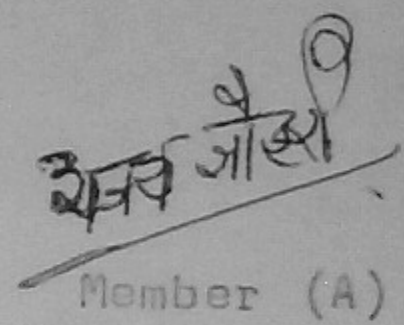 अजय जौहरी
Member (A)